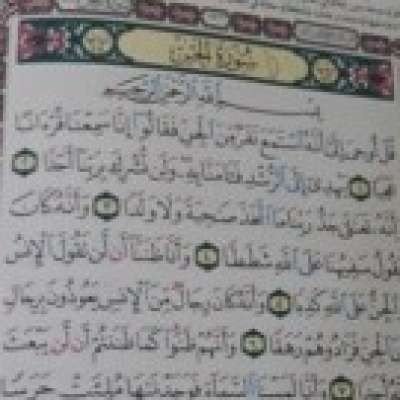 سُورَةُ الجِنِّ
بِسْمِ اللَّهِ الرَّحْمَٰنِ الرَّحِيمِ
قُلْ أُوحِيَ إِلَيَّ أَنَّهُ اسْتَمَعَ نَفَرٌ مِّنَ الْجِنِّ فَقَالُوا إِنَّا سَمِعْنَا قُرْءَانًا
عَجَبًا ١ يَهْدِي إِلَى الرُّشْدِ فَـَٔامَنَّا بِهِ وَلَن نُّشْرِكَ بِرَبِّنَا أَحَدًا ٢
وَأَنَّهُ تَعَالَىٰ جَدُّ رَبِّنَا مَا اتَّخَذَ صَاحِبَةً وَلَا وَلَدًا ٣ وَأَنَّهُ كَانَ
يَقُولُ سَفِيهُنَا عَلَى اللَّهِ شَطَطًا ٤ وَأَنَّا ظَنَنَّا أَن لَّن تَقُولَ الْإِنسُ
وَالْجِنُّ عَلَى اللَّهِ كَذِبًا ٥ وَأَنَّهُ كَانَ رِجَالٌ مِّنَ الْإِنسِ يَعُوذُونَ بِرِجَالٍ
مِّنَ الْجِنِّ فَزَادُوهُمْ رَهَقًا ٦ وَأَنَّهُمْ ظَنُّوا كَمَا ظَنَنتُمْ أَن لَّن يَبْعَثَ
أَحَدًا ٧ وَأَنَّا لَمَسْنَا السَّمَاءَ فَوَجَدْنَاهَا مُلِئَتْ حَرَسًا